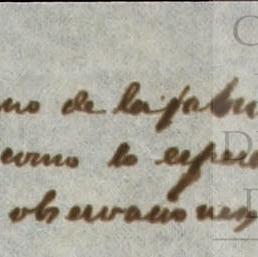 no de la fabri
como lo espe
observaciones